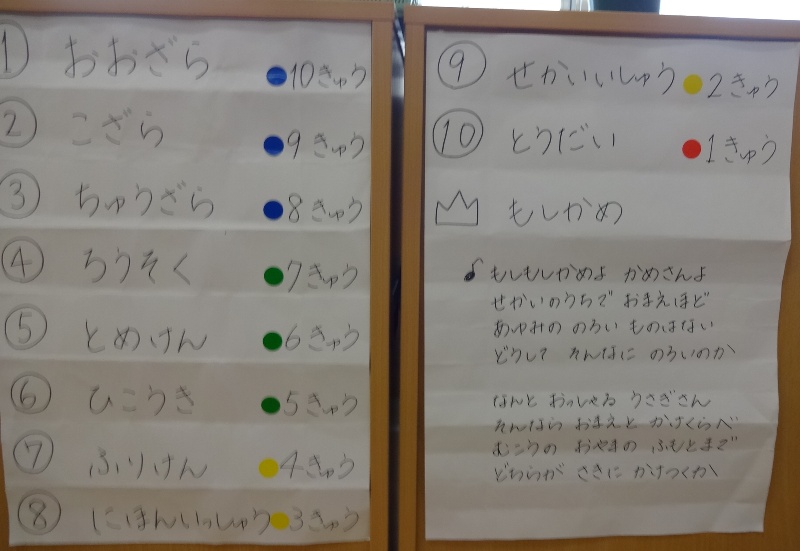 ① おおざら 10きゅう
② こざら 9きゅう
③ ちゅうざら 8きゅう
④ ろうそく 7きゅう
⑤ とめけん 6きゅう
⑥ ひこうき 5きゅう
⑦ ふりけん 4きゅう
⑧ にほんいっしゅう 3きゅう
⑨ せかいいしゅう 2きゅう
⑩ とうだい 1きゅう
もしかめ
♪ もしもしかめよ かめさんよ
せかいのうちで おまえほど
あゆみの のろい ものはない
どうして そんなに のろいのか
なんと おっしゃる うさぎさん
そんなら おまえと かけくらべ
むこうの おやまの ふもとまで
どちらが さきに かけつくか